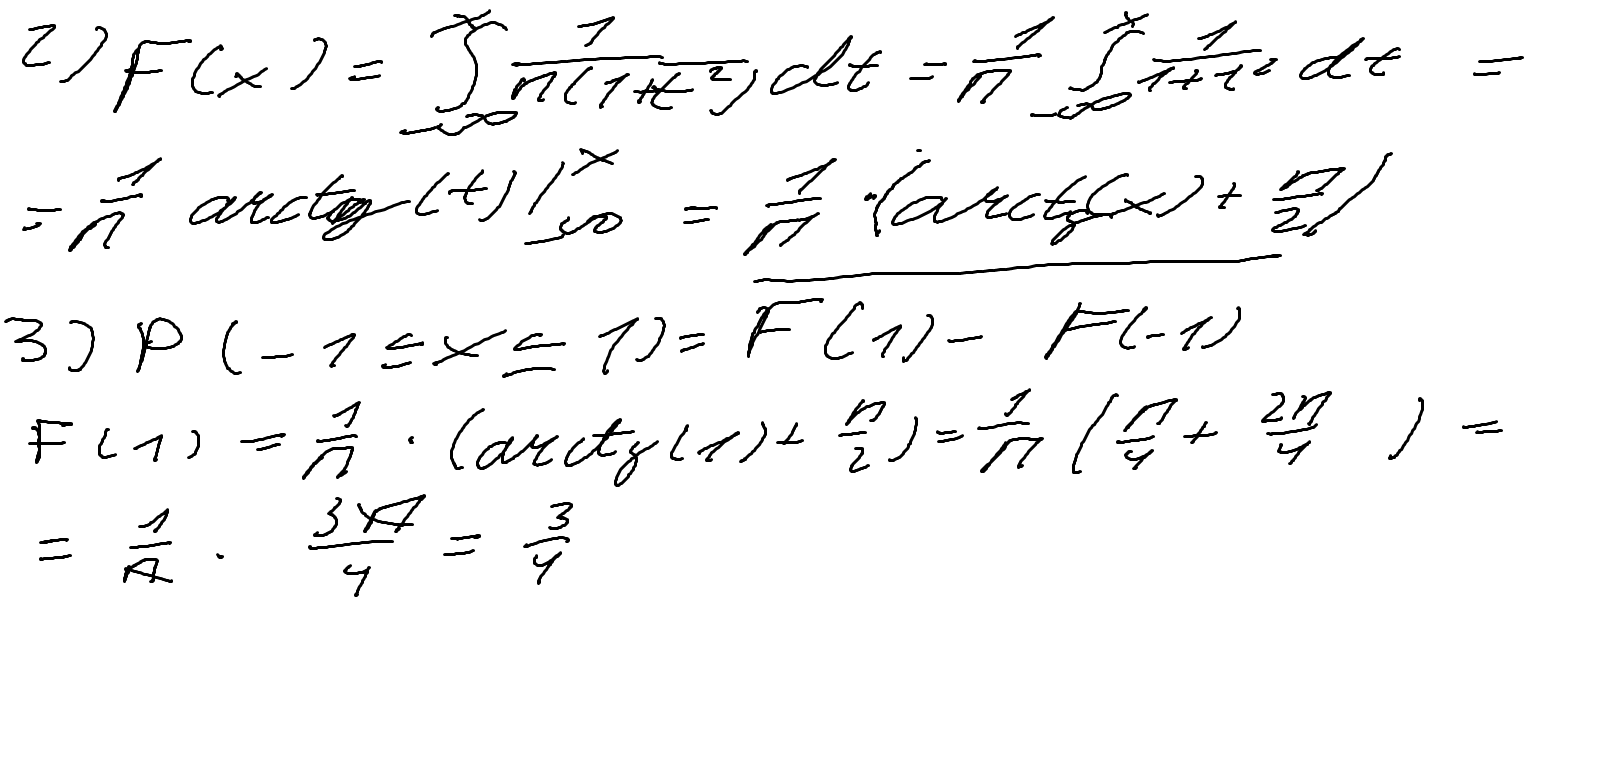 2) F(x) = ∫_{-∞}^{x} 1/(π(1+t²)) dt = 1/π ∫_{-∞}^{x} 1/(1+t²) dt =
= 1/π arctg(t) |_{-∞}^{x} = 1/π · (arctg(x) + π/2)
3) P(-1 ≤ x ≤ 1) = F(1) - F(-1)
F(1) = 1/π · (arctg(1) + π/2) = 1/π (π/4 + 2π/4) =
= 1/π · 3π/4 = 3/4